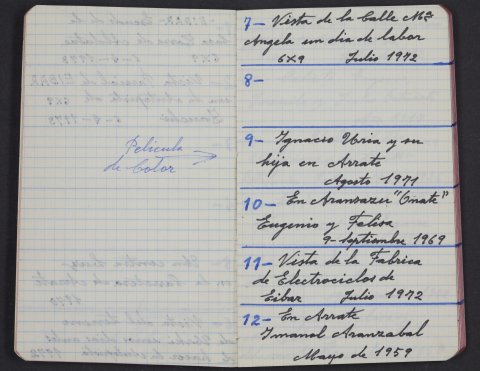 Pelicula
de Color
7- Vista de la Calle Mª
Angela un dia de labor
6x9 Julio 1972
8-
9- Ignacio Uria y su
hija en Arrate
Agosto 1971
10- En Aranzazu "Oñate"
Eugenio y Felisa
9-Septiembre 1969
11- Vista de la Fabrica
de Electrociclos de
Eibar Julio 1972
12- En Arrate
Imanol Aranzabal
Mayo de 1959